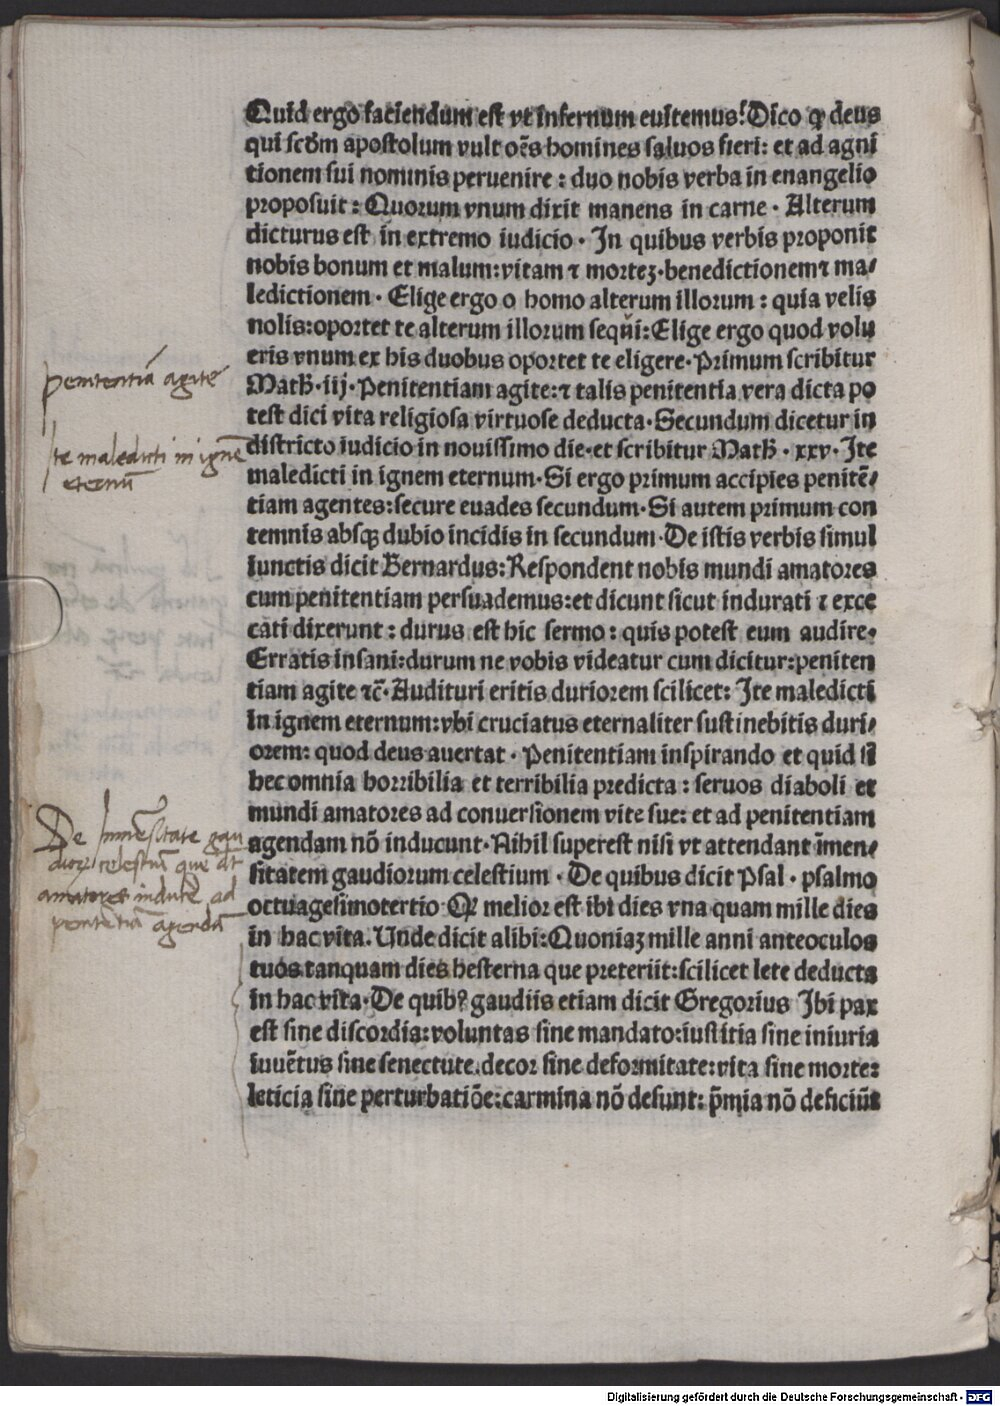 Quid ergo faciendum est vt infernum euitemus? Dico ꝙ deus
qui scdm apostolum vult oēs homines saluos fieri: et ad agni
tionem sui nominis peruenire : duo nobis verba in enangelio
proposuit : Quorum vnum dixit manens in carne · Alterum
dicturus est in extremo iudicio · In quibus verbis proponit
nobis bonum et malum: vitam ⁊ morteꝫ · benedictionem ⁊ ma/
ledictionem · Elige ergo o homo alterum illorum : quia velis
nolis: oportet te alterum illorum sequi: Elige ergo quod volu
eris vnum ex his duobus oportet te eligere · Primum scribitur
Math · iij · Penitentiam agite: ⁊ talis penitentia vera dicta po
test dici vita religiosa virtuose deducta · Secundum dicetur in
districto iudicio in nouissimo die · et scribitur Math · xxv · Ite
maledicti in ignem eternum · Si ergo primum accipies penitē/
tiam agentes: secure euades secundum · Si autem primum con
temnis absqꝫ dubio incidis in secundum · De istis verbis simul
iunctis dicit Bernardus: Respondent nobis mundi amatores
cum penitentiam persuademus: et dicunt sicut indurati ⁊ exce
cati dixerunt : durus est hic sermo : quis potest eum audire ·
Erratis insani: durum ne vobis videatur cum dicitur: peniten
tiam agite ⁊c̄ · Audituri eritis duriorem scilicet: Ite maledicti
in ignem eternum: vbi cruciatus eternaliter sustinebitis duri/
orem: quod deus auertat · Penitentiam inspirando et quid si
hec omnia horribilia et terribilia predicta : seruos diaboli et
mundi amatores ad conuersionem vite sue: et ad penitentiam
agendam nō inducunt · Nihil superest nisi vt attendant īmen/
sitatem gaudiorum celestium · De quibus dicit Psal · psalmo
octuagesimotertio Qꝛ melior est ibi dies vna quam mille dies
in hac vita. Unde dicit alibi: Quoniaꝫ mille anni anteoculos
tuos tanquam dies hesterna que preteriit: scilicet lete deducta
in hac vita · De quibꝰ gaudiis etiam dicit Gregorius Ibi pax
est sine discordia: voluntas sine mandato: iustitia sine iniuria
iuuētus sine senectute. decor sine deformitate: vita sine morte:
leticia sine perturbatiōe: carmina nō desunt: p̄mia nō deficiūt
penitentiā agite
Ite maledicti in ignē
eternū
De īmēsitate gau
dioꝝ celestiū que
amatores inducūt ad
penitētiā agendā
Digitalisierung gefördert durch die Deutsche Forschungsgemeinschaft · DFG